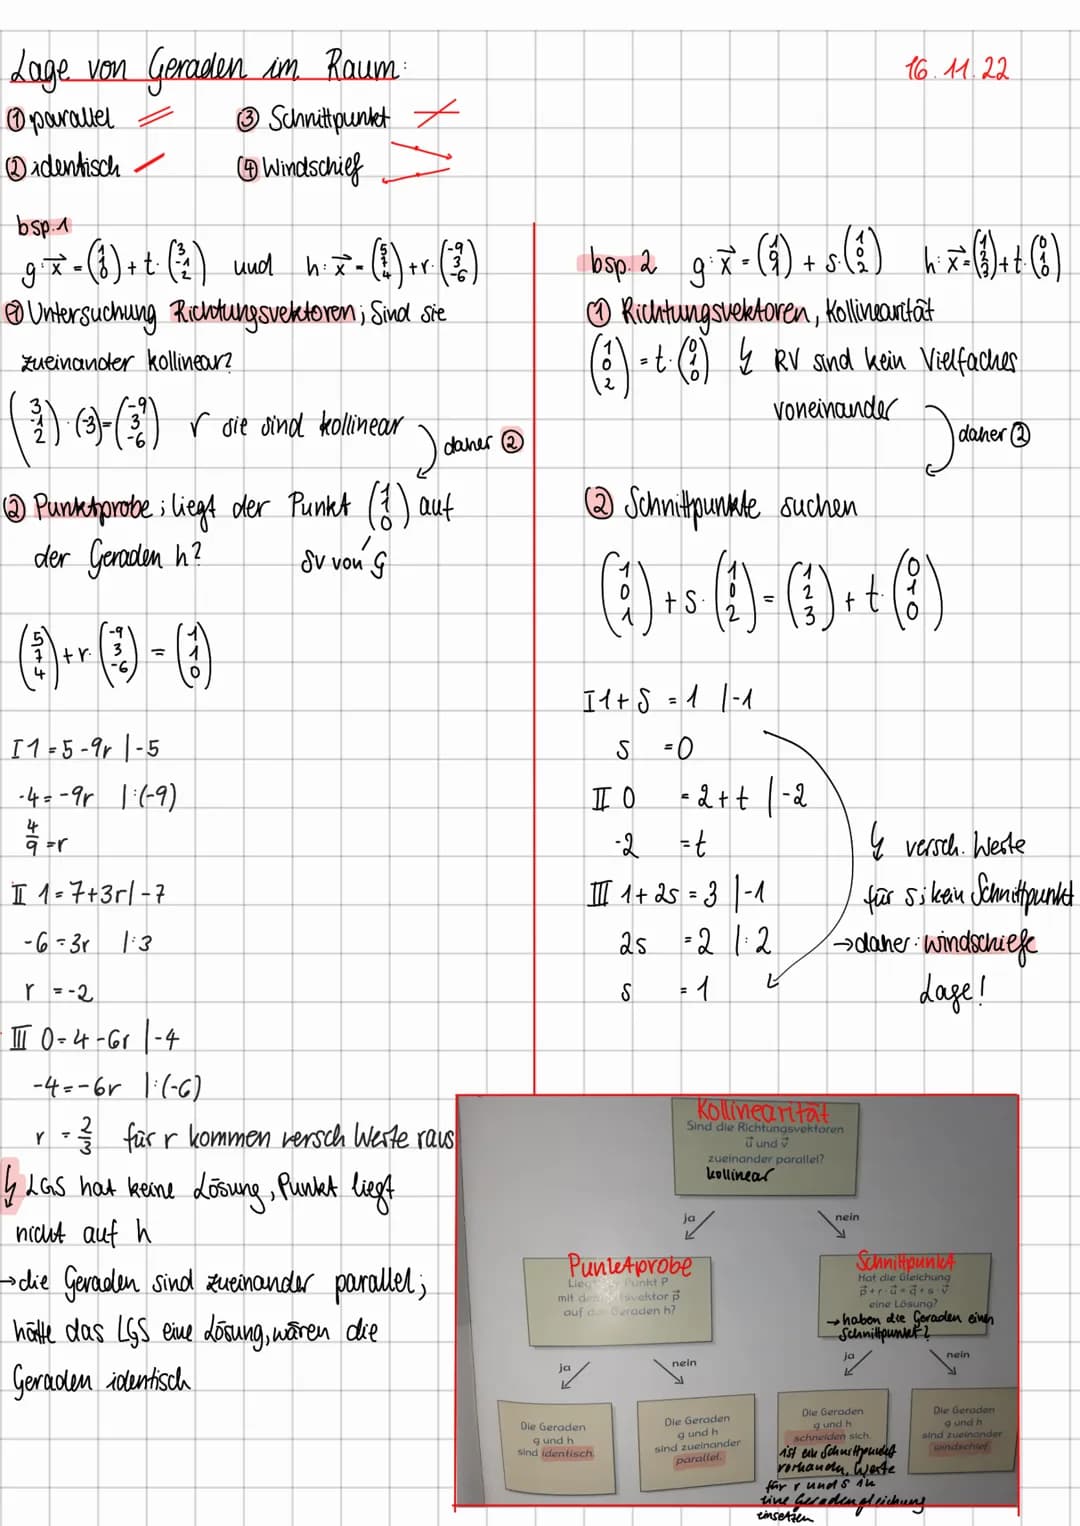 Lage von Geraden im Raum:
16.11.22
① parallel
③ Schnittpunkt
② identisch
④ Windschief
bsp.1
g: x⃗ = (1 1 0) + t· (3 -1 2) und h: x⃗ = (5 7 4) + r· (-9 3 -6)
① Untersuchung Richtungsvektoren; Sind sie
zueinander kollinear?
(3 -1 2) · (-3) = (-9 3 -6) ✓ sie sind kollinear
daher ②
② Punktprobe; liegt der Punkt (1 1 0) auf
der Geraden h? SV von G
(5 7 4) + r· (-9 3 -6) = (1 1 0)
I 1 = 5 - 9r |-5
-4 = -9r |:(-9)
4/9 = r
II 1 = 7+3r |-7
-6 = 3r |:3
r = -2
III 0 = 4 - 6r |-4
-4 = -6r |:(-6)
r = 2/3 für r kommen versch Werte raus
↯ LGS hat keine Lösung, Punkt liegt
nicht auf h
→ die Geraden sind zueinander parallel;
hätte das LGS eine Lösung, wären die
Geraden identisch
bsp. 2 g: x⃗ = (1 0 1) + s· (1 0 2) h: x⃗ = (1 2 3) + t· (0 1 0)
① Richtungsvektoren, Kollinearität
(1 0 2) = t· (0 1 0) ↯ RV sind kein Vielfaches
voneinander
daher ②
② Schnittpunkte suchen
(1 0 1) + s· (1 0 2) = (1 2 3) + t· (0 1 0)
I 1 + s = 1 |-1
s = 0
II 0 = 2 + t |-2
-2 = t
III 1 + 2s = 3 |-1
2s = 2 |:2
s = 1
↯ versch. Werte
für s; kein Schnittpunkt
→ daher: windschiefe
Lage!
Kollinearität
Sind die Richtungsvektoren
u⃗ und v⃗
zueinander parallel?
kollinear
ja
nein
Punktprobe
Liegt Punkt P
mit
auf Geraden h?
Schnittpunkt
Hat die Gleichung
p⃗ + r · u⃗ = q⃗ + s · v⃗
eine Lösung?
→ haben die Geraden einen
Schnittpunkt?
ja
nein
ja
nein
Die Geraden
g und h
sind identisch.
Die Geraden
g und h
sind zueinander
parallel.
Die Geraden
g und h
schneiden sich.
ist ein Schnittpunkt
vorhanden, Werte
für r und s in
eine Geradengleichung
einsetzen
Die Geraden
g und h
sind zueinander
windschief